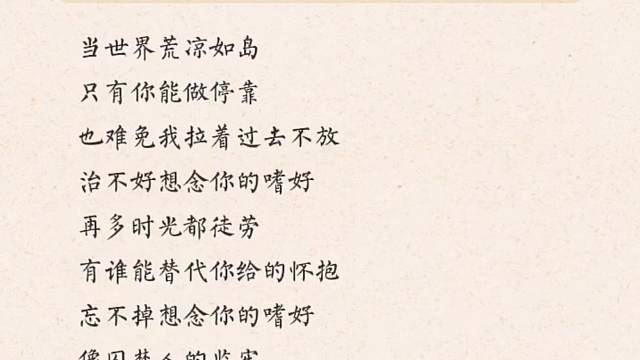 当世界荒凉如岛
只有你能做停靠
也难免我拉着过去不放
治不好想念你的嗜好
再多时光都徒劳
有谁能替代你给的怀抱
忘不掉想念你的嗜好